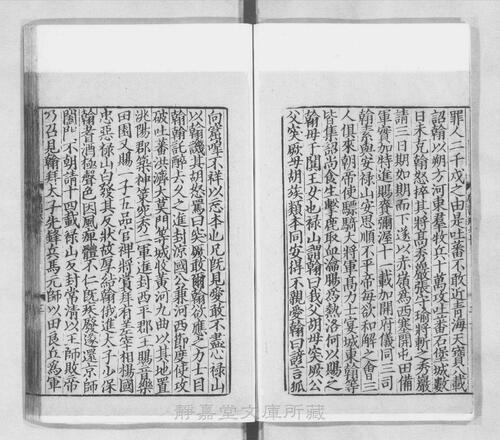 罪人二千戍之由是吐蕃不敢近青海天寶八載
詔翰以朔方河東羣牧兵十萬攻吐蕃石堡城數
日未克翰怒捽其將高秀巖張守瑜將斬之秀巖
請三日期如期而下遂以赤嶺為西塞開屯田備
軍實加特進賜賚彌渥十一載加開府儀同三司
翰素與安祿山安思順不平帝每欲和解之會三
人俱來朝帝使驃騎大將軍高力士宴城東翰等
皆集詔尚食生擊鹿取血瀹腸為熱洛何以賜之
翰母于闐王女也祿山謂翰曰我父胡母突厥公
父突厥母胡族類本同安得不親愛翰曰諺言狐
向窟嗥不祥以忘本也兄既見愛敢不盡心祿山
以翰譏其胡怒罵曰突厥敢爾翰欲應之力士目
翰翰託醉去久之進封涼國公兼河西節度使攻
破吐蕃洪濟大莫門等城收黃河九曲以其地置
洮陽郡築神策宛秀二軍進封西平郡王賜音樂
田園又賜一子五品官裨將賞拜有差宰相楊國
忠惡祿山白發其反狀故厚結翰俄進太子少保
翰耆酒極聲色因風痺體不仁既疾廢遂還京師
闔門不朝請十四載祿山反封常清以王師敗帝
乃召見翰拜太子先鋒兵馬元帥以田良丘為軍
靜嘉堂文庫所藏